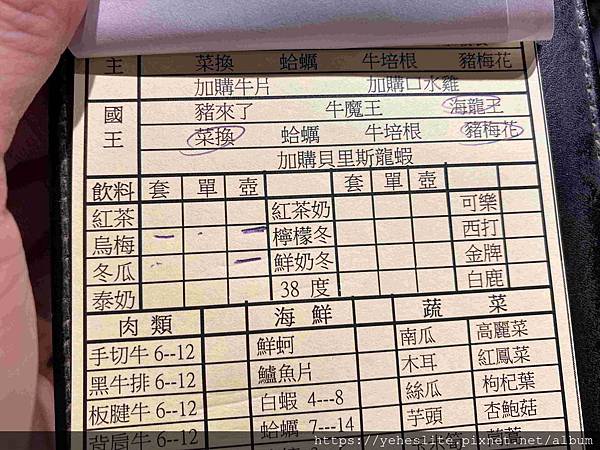 王 菜換 蛤蠣 牛培根 豬梅花
加購牛片 加購口水雞
國王 豬來了 牛魔王 海龍王
菜換 蛤蠣 牛培根 豬梅花
加購貝里斯龍蝦
飲料 套 單 壺 套 單 壺
紅茶 紅茶奶 可樂
烏梅 檸檬冬 西打
冬瓜 鮮奶冬 金牌
泰奶 38 度 白鹿
肉 類 海 鮮 蔬 菜
手切牛 6--12 鮮蚵 南瓜 高麗菜
黑牛排 6--12 鱸魚片 木耳 紅鳳菜
板腱牛 6--12 白蝦 4---8 絲瓜 枸杞葉
背肩牛 6--12 蛤蠣 7---14 芋頭 杏鮑菇
https://yeheslite.pixnet.net/album